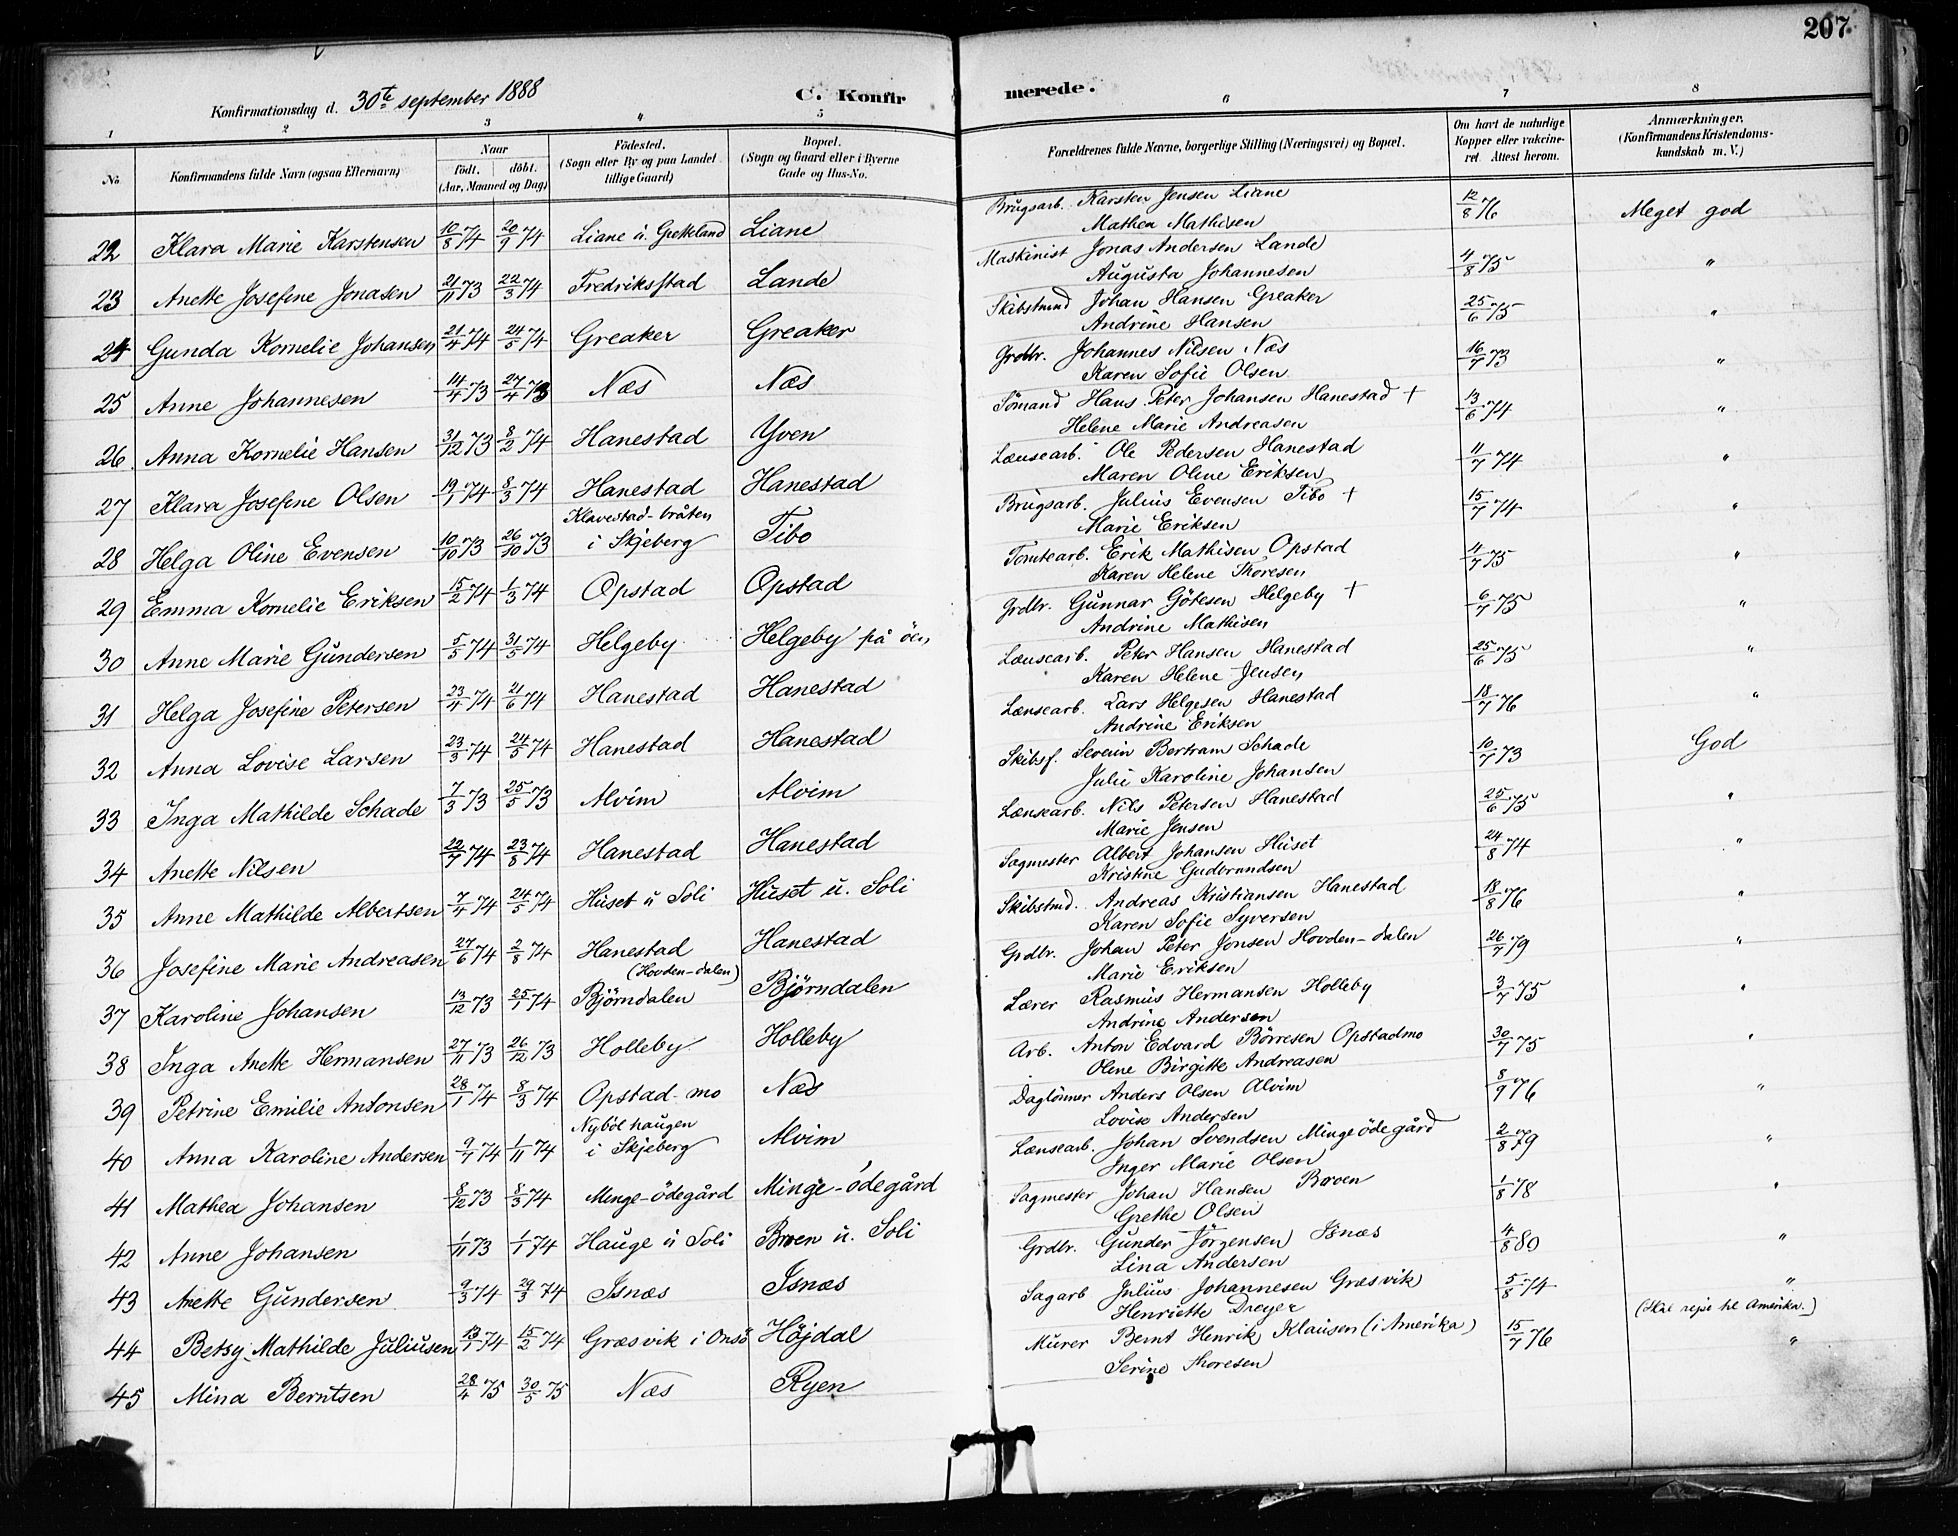 207.
Konfirmationsdag d. 30te september 1888
C. Konfirmerede.
1 2 3 4 5 6 7 8
No.
Konfirmandens fulde Navn (ogsaa Efternavn)
Naar
født. døbt.
(Aar, Maaned og Dag)
Fødested.
(Sogn eller By og paa Landet
tillige Gaard)
Bopæl.
(Sogn og Gaard eller i Byerne
Gade og Hus-No.
Forældrenes fulde Navne, borgerlige Stilling (Næringsvei) og Bopæl.
Om havt de naturlige
Kopper eller vakcine-
ret. Attest herom.
Anmærkninger.
(Konfirmandens Kristendoms-
kundskab m. V.)
22 Klara Marie Karstensen 10/8 74 20/9 74 Liane u. Grotteland Liane Brugsarb. Karsten Jensen Liane 12/8 76 Meget god
Mathea Mathisen
23 Anette Josefine Jonasen 21/11 73 22/3 74 Fredriksstad Lande Maskinist Jonas Andersen Lande 4/8 75 "
Augusta Johannesen
24 Gunda Kornelie Johansen 21/4 74 24/5 74 Greaker Greaker Skibstmd Johan Hansen Greaker 25/6 75 "
Andrine Hansen
25 Anne Johannesen 14/4 73 27/4 73 Næs Næs Grdbr. Johannes Nilsen Næs 16/7 73 "
Karen Sofie Olsen
26 Anna Kornelie Hansen 31/12 73 8/2 74 Hanestad Yven Sömand Hans Peter Johansen Hanestad + 13/6 74 "
Helene Marie Andreasen
27 Klara Josefine Olsen 19/1 74 8/3 74 Hanestad Hanestad Lænsearb. Ole Pedersen Hanestad 11/7 74 "
Maren Olene Eriksen
28 Helga Oline Evensen 10/10 73 26/10 73 Klavestad-bråten i Skjeberg Tibo Brugsarb. Julius Evensen Tibo + 15/7 74 "
Marie Eriksen
29 Emma Kornelie Eriksen 15/2 74 1/3 74 Opstad Opstad Tomtearb. Erik Mathisen Opstad 4/7 75 "
Karen Helene Thoresen
30 Anne Marie Gundersen 5/5 74 31/5 74 Helgeby Helgeby på öen Grdbr. Gunnar Götesen Helgeby + 6/7 75 "
Andrine Mathisen
31 Helga Josefine Petersen 23/4 74 21/6 74 Hanestad Hanestad Lænsearb. Peter Hansen Hanestad 25/6 75 "
Karen Helene Jensen
32 Anna Lovise Larsen 23/3 74 24/5 74 Hanestad Hanestad Lænsearb. Lars Helgesen Hanestad 18/7 76 "
Andrine Eriksen
33 Inga Mathilde Schade 7/3 73 25/5 73 Alvim Alvim Skibsf. Severin Bertram Schade 10/7 73 God
Julie Karoline Johansen
34 Anette Nilsen 22/7 74 23/8 74 Hanestad Hanestad Lænsearb. Nils Petersen Hanestad 25/6 75 "
Marie Jensen
35 Anne Mathilde Albertsen 7/4 74 24/5 74 Huset u Soli Huset u. Soli Sagmester Albert Johansen Huset 24/8 74 "
Kristine Gudbrandsen
36 Josefine Marie Andreasen 27/6 74 2/8 74 Hanestad Hanestad Skibstmd. Andreas Kristiansen Hanestad 18/8 76 "
Karen Sofie Syversen
37 Karoline Johansen 13/12 73 25/1 74 (Hovden-dalen) Björndalen Björndalen Grdbr. Johan Peter Jonsen Hovden-dalen 26/7 79 "
Marie Eriksen
38 Inga Anette Hermansen 27/11 73 26/12 73 Holleby Holleby Lærer Rasmus Hermansen Holleby 3/7 75 "
Andrine Andersen
39 Petrine Emilie Antonsen 28/1 74 8/3 74 Opstad-mo Næs Arb. Anton Edvard Börresen Opstadmo 30/7 75 "
Olene Birgitte Andreasen
40 Anna Karoline Andersen 9/7 74 1/11 74 Nyböl haugen i Skjeberg Alvim Daglönner Anders Olsen Alvim 8/9 76 "
Lovise Andersen
41 Mathea Johansen 8/12 73 8/3 74 Minge-ödegård Minge-ödegård Lænsearb. Johan Svendsen Minge ödegård 2/8 79 "
Inger Marie Olsen
42 Anne Johansen 1/11 73 1/1 74 Hauge u Soli Broen u. Soli Sagmester Johan Hansen Broen 1/8 78 "
Grethe Olsen
43 Anette Gundersen 9/3 74 29/3 74 Isnæs Isnæs Grdbr. Gunder Jörgensen Isnæs 4/8 80 "
Lina Andersen
44 Betsy Mathilde Juliusen 13/1 74 15/2 74 Græsvik i Onsö Höjdal Sagarb Julius Johannesen Græsvik 5/8 74 "
Henriette Dreyer (Skal rejse til Amerika.)
45 Mina Berntsen 28/4 75 30/5 75 Næs Ryen Murer Bernt Henrik Klausen (i Amerika) 15/7 76 "
Serine Thoresen